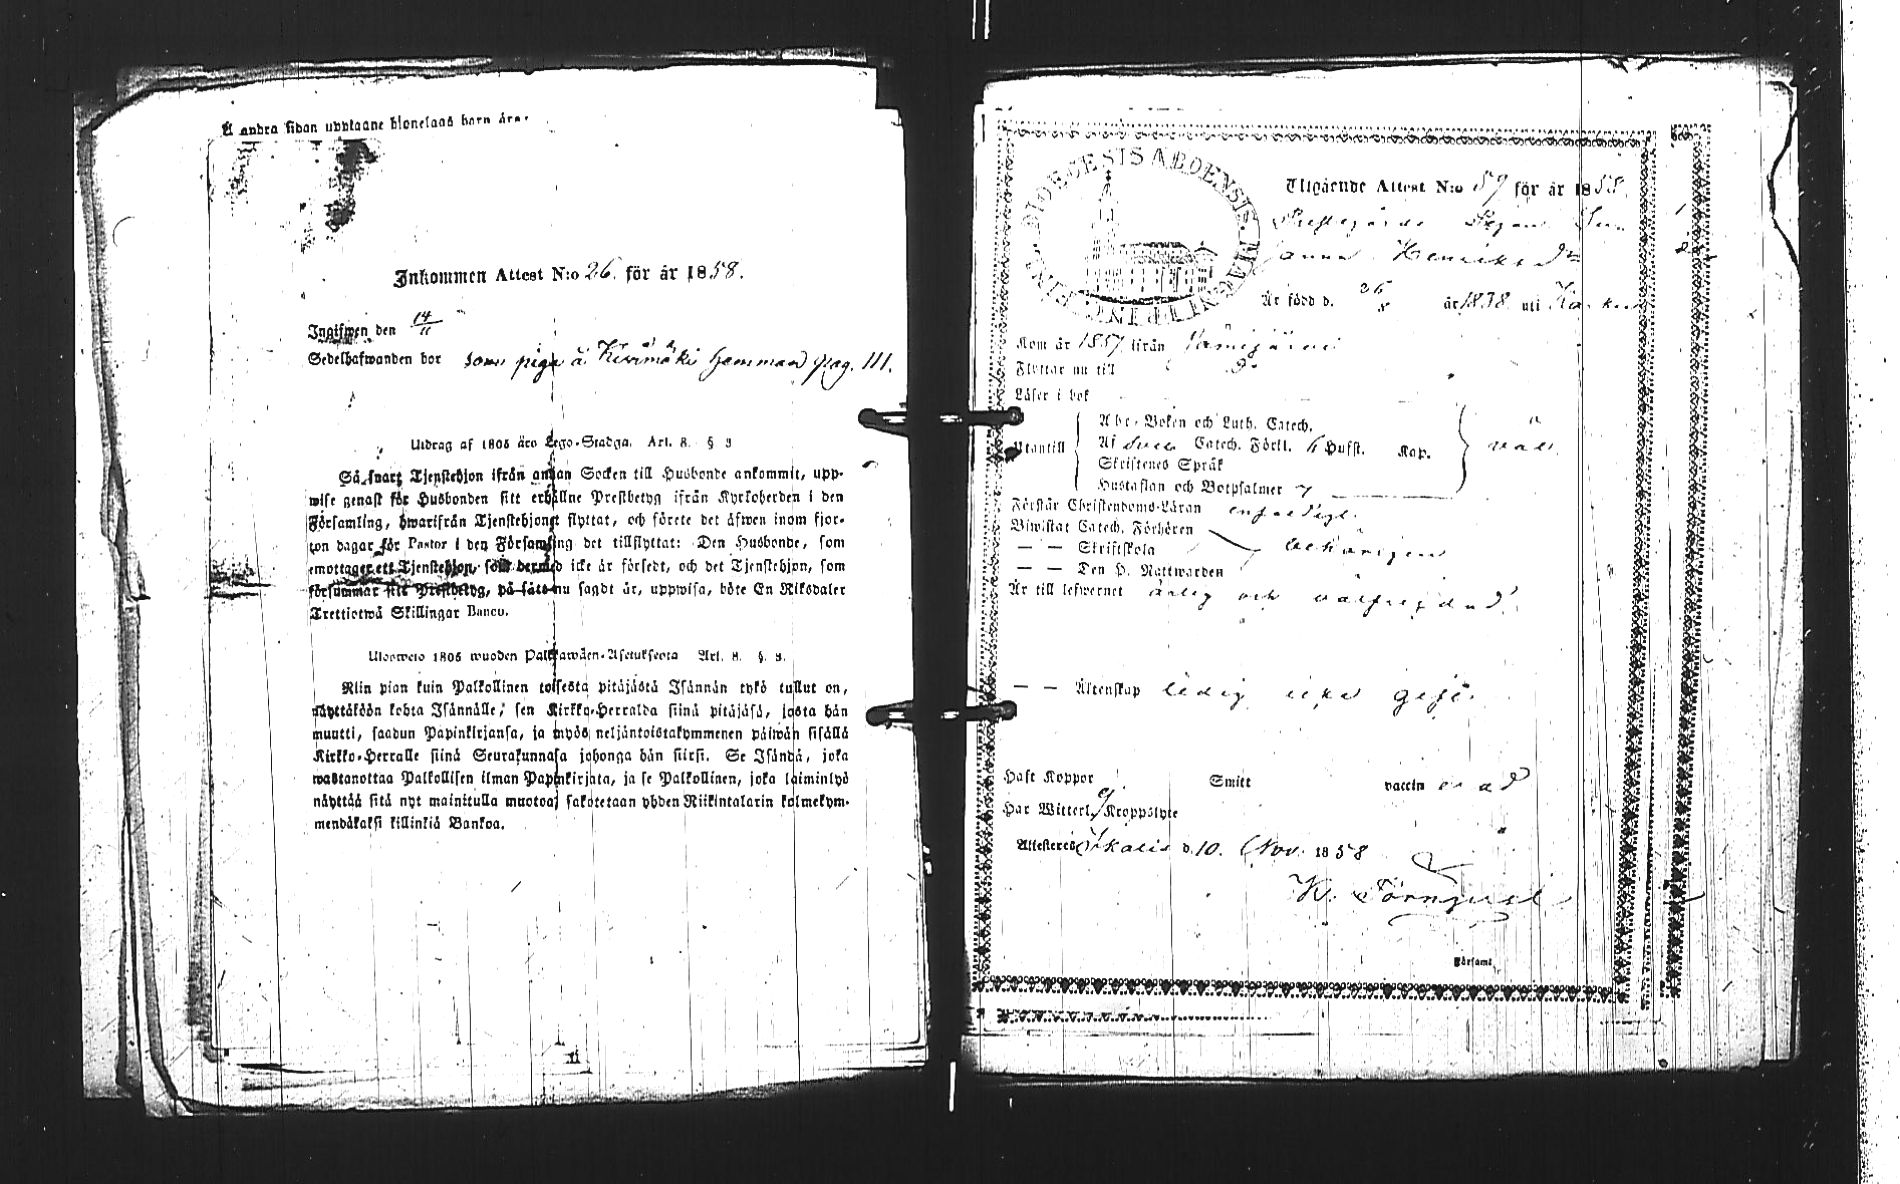 Å andra sidan upptagne hjonelags barn äro:
Inkommen Attest N:o 26. för år 1858.
Ingifwen den 14/11
Sedelhafwanden bor som piga å Kivimäki hemman pag. 111.
Utdrag af 1805 års Lego-Stadga. Art. 8. § 3
Så snart Tjenstehjon ifrån annan Socken till Husbonde ankommit, upp-
wise genast för Husbonden sitt erhållne Prestbetyg ifrån Kyrkoherden i den
Församling, hwarifrån Tjenstehjonet flyttat, och förete det äfwen inom fjor-
ton dagar för Pastor i den Församling det tillflyttat: Den Husbonde, som
emottager ett Tjenstehjon, som dermed icke är försedt, och det Tjenstehjon, som
försummar sitt Prestbetyg, på sätt nu sagdt är, uppwisa, böte En Riksdaler
Trettiotwå Skillingar Banco.
Ulosweto 1805 wuoden Palkkawäen-Asetuksesta Art. 8. §. 3.
Niin pian kuin Palkollinen toisesta pitäjästä Isännän tykö tullut on,
näyttäköön kohta Isännälle, sen Kirkko-Herralda siinä pitäjäsä, josta hän
muutti, saadun Papinkirjansa, ja myös neljäntoistakymmenen päiwän sisällä
Kirkko-Herralle siinä Seurakunnasa johonga hän siirsi. Se Isändä, joka
wastanottaa Palkollisen ilman Papinkirjata, ja se Palkollinen, joka laiminlyö
näyttää sitä nyt mainitulla muotoa, sakotetaan yhden Riikintalarin kolmekym-
mendäkaksi killinkiä Bankoa.
DIOECESIS ABOENSIS. MAGNI PRINCIP. FINL.
Utgående Attest N:o 59 för år 1858.
Henriksdr
Är född d. 26/8 år 1838 uti
Kom år 1857 ifrån
Flyttar nu till
Läser i bok
Utantill
Abc-Boken och Luth. Catech.
Af Sveb. Catech. Förkl. 6 Hufst. Kap.
Skriftenes Språk
Hustaflan och Botpsalmer 7
väl
Förstår Christendoms-Läran enfaldigt.
Biwistat Catech. Förhören
— — Skriftskola behörigen
— — Den H. Nattwarden
Är till lefwernet ärlig och välfrejdad.
— — Äktenskap ledig icke gift.
Haft Koppor Smitt vaccin erad
Har Witterl. ej Kroppslyte
Attesteras Ikalis d. 10. Nov. 1858
K. Törnqvist
Församl.